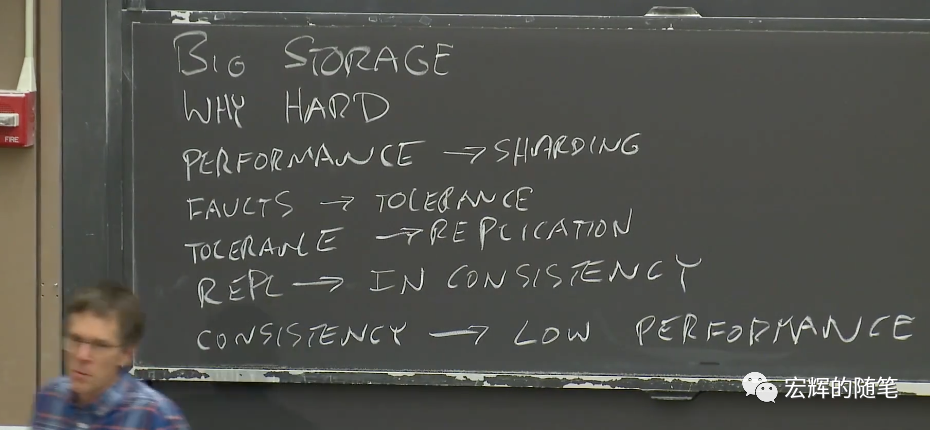 BIG STORAGE
WHY HARD
PERFORMANCE → SHARDING
FAULTS → TOLERANCE
TOLERANCE → REPLICATION
REPL → IN CONSISTENCY
CONSISTENCY → LOW PERFORMANCE
FIRE
宏辉的随笔